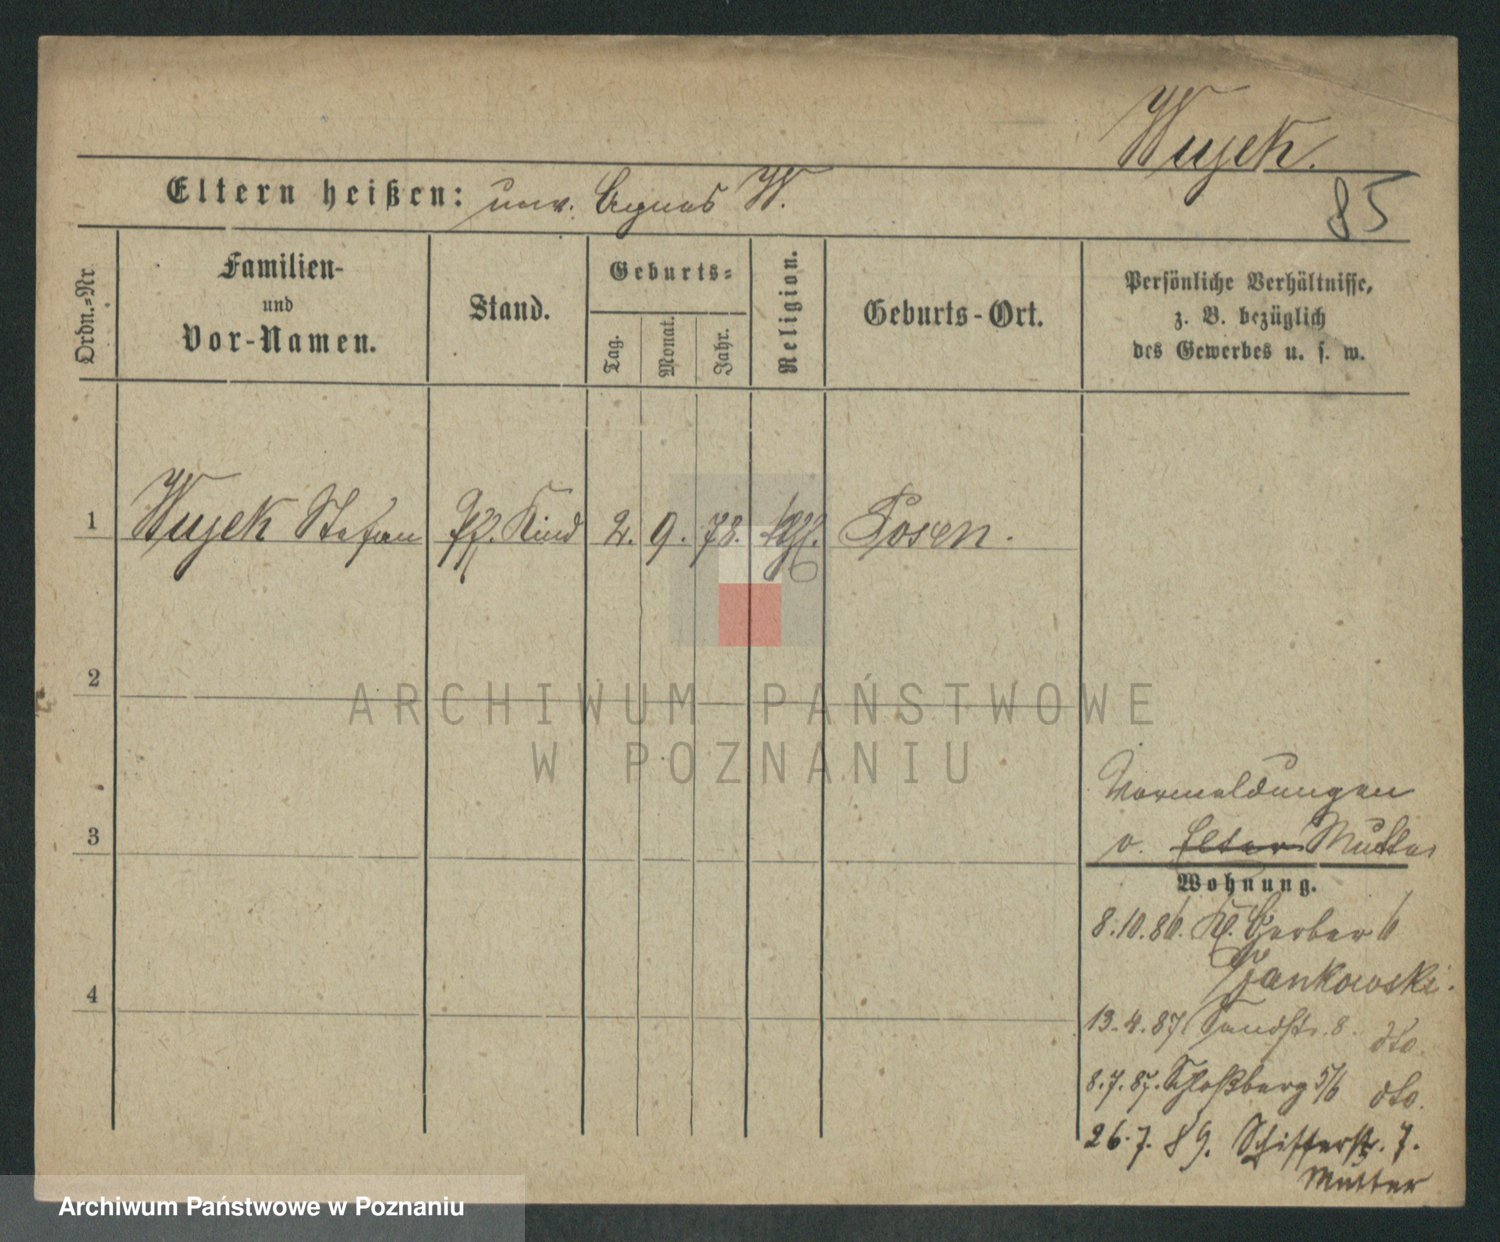 Wujek.
Eltern heißen: unv. Agnes W.
85
Ordn.=Nr
Familien-
und
Vor-Namen.
Stand.
Geburts=
Tag.
Monat.
Jahr.
Religion.
Geburts-Ort.
Persönliche Verhältnisse,
z. B. bezüglich
des Gewerbes u. s. w.
1 Wujek Stefan Kind 2. 9. 78. Posen.
2
3
4
ARCHIWUM PAŃSTWOWE
W POZNANIU
Vormeldungen
v. Elter Mutter
Wohnung.
8.10.86. Kl. Gerber 6
Jankowski.
13.4.87 Sandstr. 8. dto.
8.7.87. Schloßberg 5/6 dto.
26.7.89. Schifferstr. 7.
Mutter
Archiwum Państwowe w Poznaniu